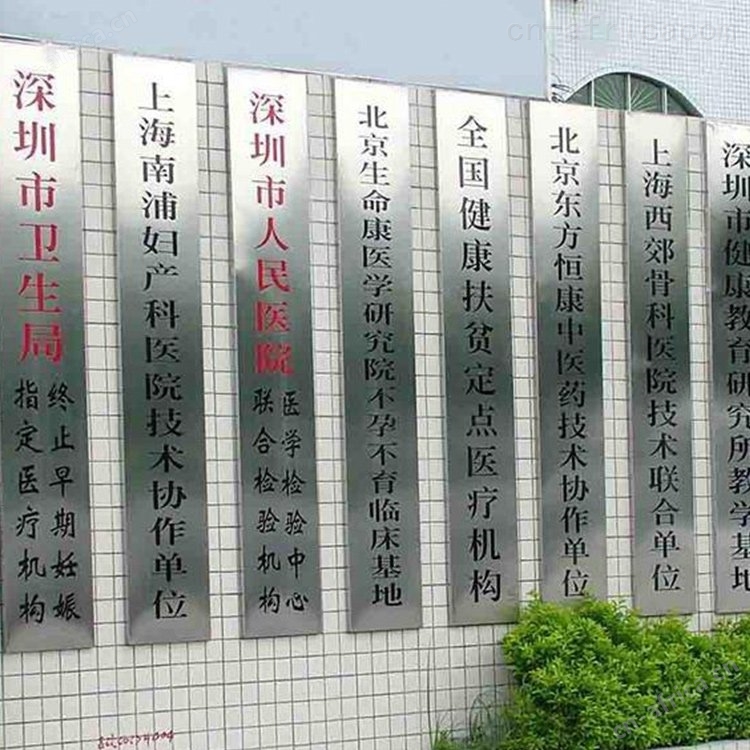 深圳市卫生局
终止早期妊娠
指定医疗机构
上海南浦妇产科医院技术协作单位
深圳市人民医院
医学检验中心
联合检验机构
北京生命康医学研究院不孕不育临床基地
全国健康扶贫定点医疗机构
北京东方恒康中医药技术协作单位
上海西郊骨科医院技术联合单位
深圳市健康教育研究所教学基地